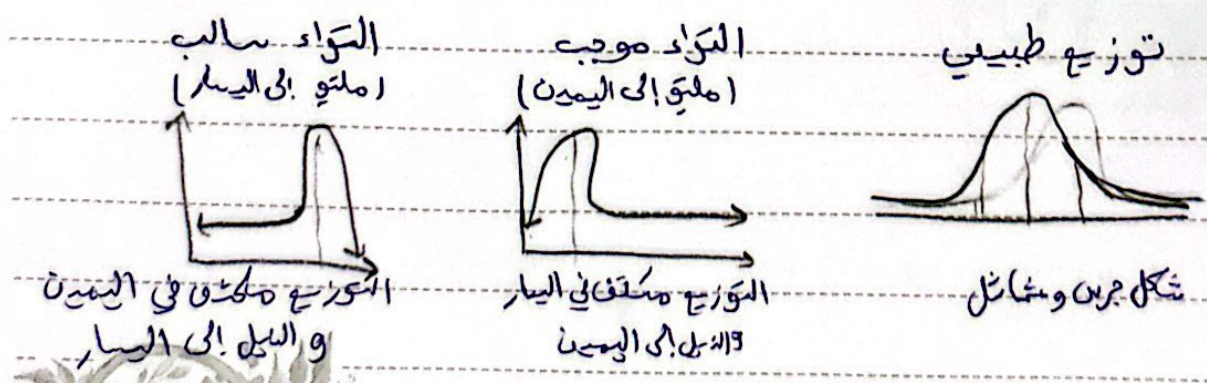 توزيع طبيعي
شكل جرس ومتماثل
التواء موجب
(ملتوٍ إلى اليمين)
التوزيع مكثف في اليسار
والذيل إلى اليمين
التواء سالب
(ملتوٍ إلى اليسار)
التوزيع مكثف في اليمين
والذيل إلى اليسار